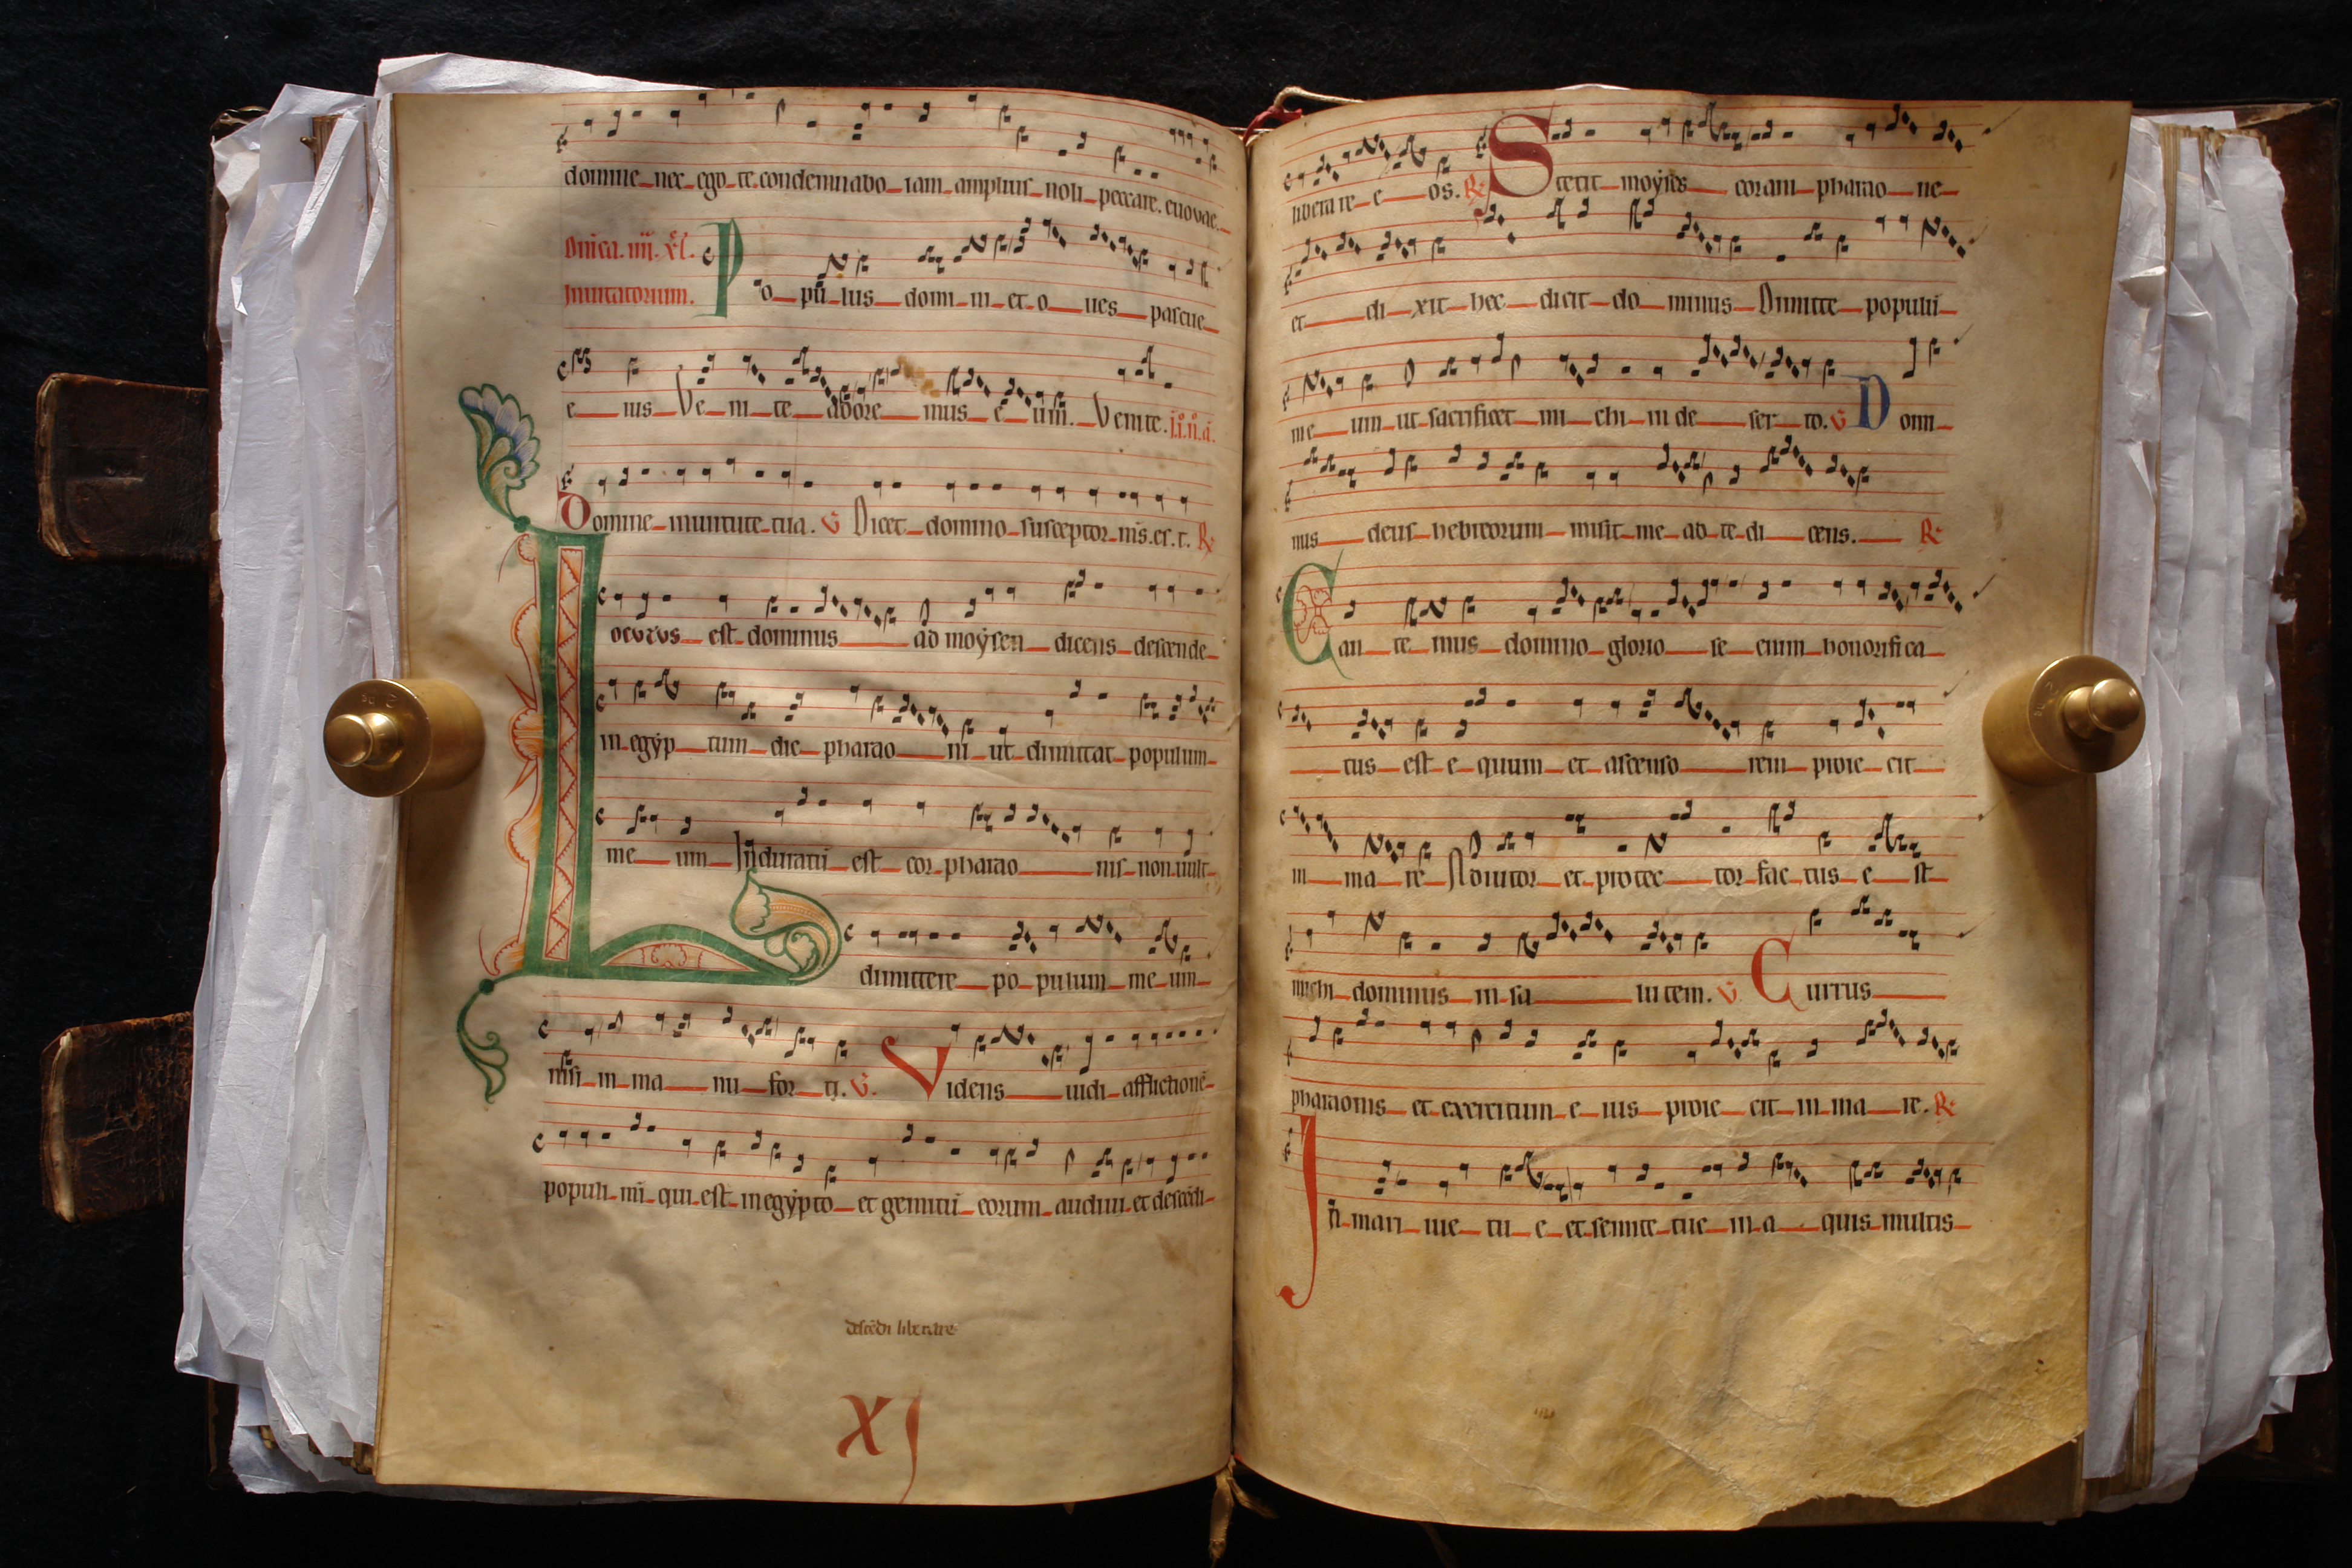 domine nec ego te condemnabo iam amplius noli peccare. euouae.
Dn̄ica. iiii. xl.
Inuitatorium.
Po pu lus domi ni et o ues pascue
e ius Ve ni te adore mus e um. Venite.
Domine in uirtute tua. V Dicet domino susceptor m̄s. es. t. R
Locutus est dominus ad moẏsen dicens descende
in egẏp tum dic pharao ni ut dimittat populum
me um Induratū est cor pharao nis non uult
dimittere po pulum me um
nisi in ma nu for ti. V. Videns uidi afflictionē
populi mī qui est in egẏpto et gemitū eorum audiui et descēdi
descēdi liberare
XI
liberare e os. R Stetit moẏses coram pharao ne
et di xit hec dicit do minus Dimitte populū
me um ut sacrificet mi chi in de ser to. V Domi
nus deus hebreorum misit me ad te di cens. R
Can te mus domino glorio se enim honorifi ca
tus est e quum et ascenso rem proie cit
in ma re Adiutor et protec tor fac tus e st
michi dominus in sa lutem. V Currus
pharaonis et exercitum e ius proie cit in ma re. R
In mari uie tu e et semite tue in a quis multis